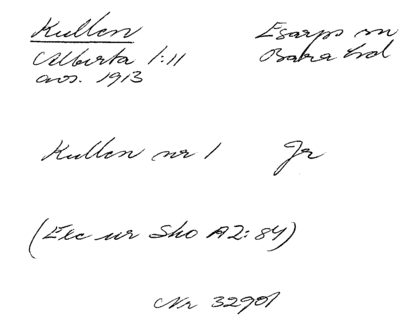 Kullen Esarps sn
Alberta 1:11 Bara hd
avs. 1913
Kullen nr 1 Jr
(Exc ur Sko A2: 84)
Nr 32901